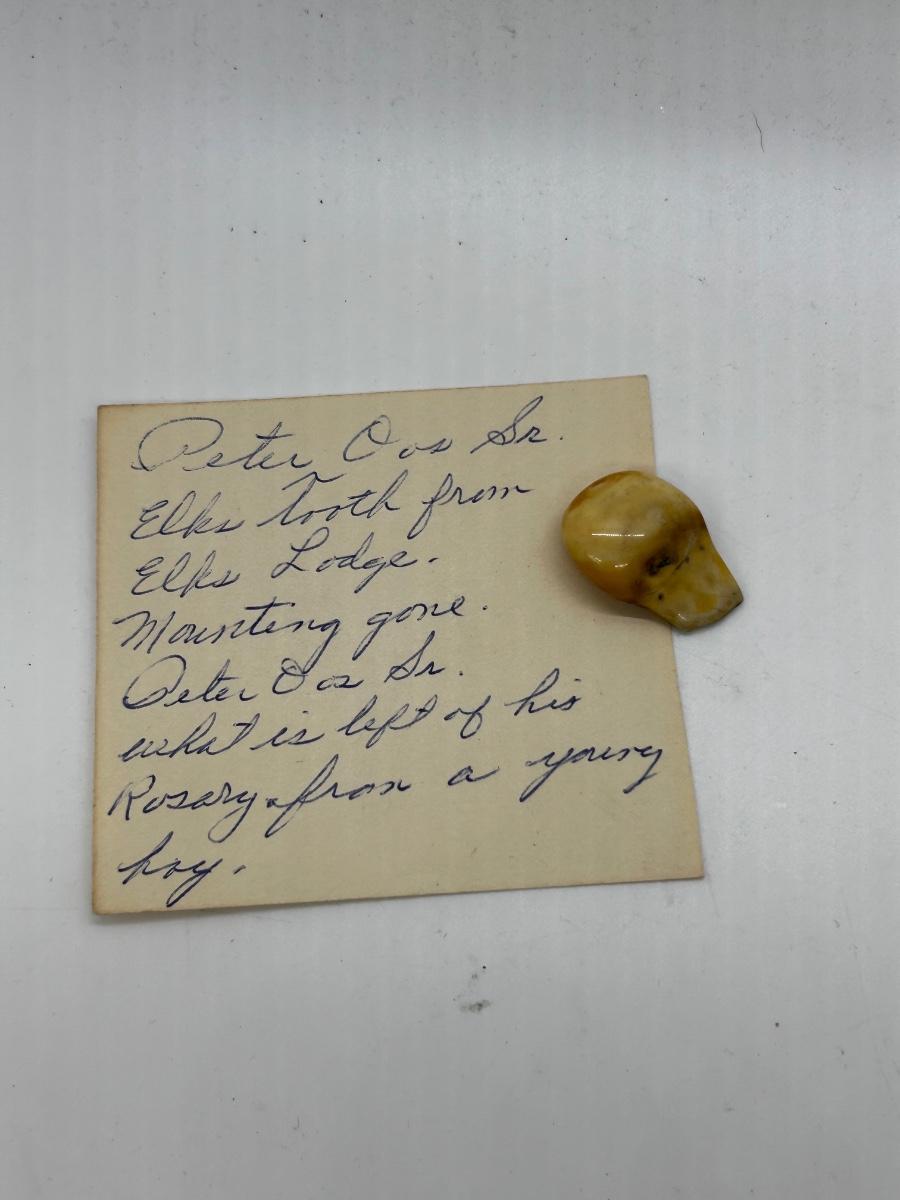 Peter Oos Sr.
Elks Tooth from
Elks Lodge.
Mounting gone.
Peter Oos Sr.
what is left of his
Rosary from a young
boy.